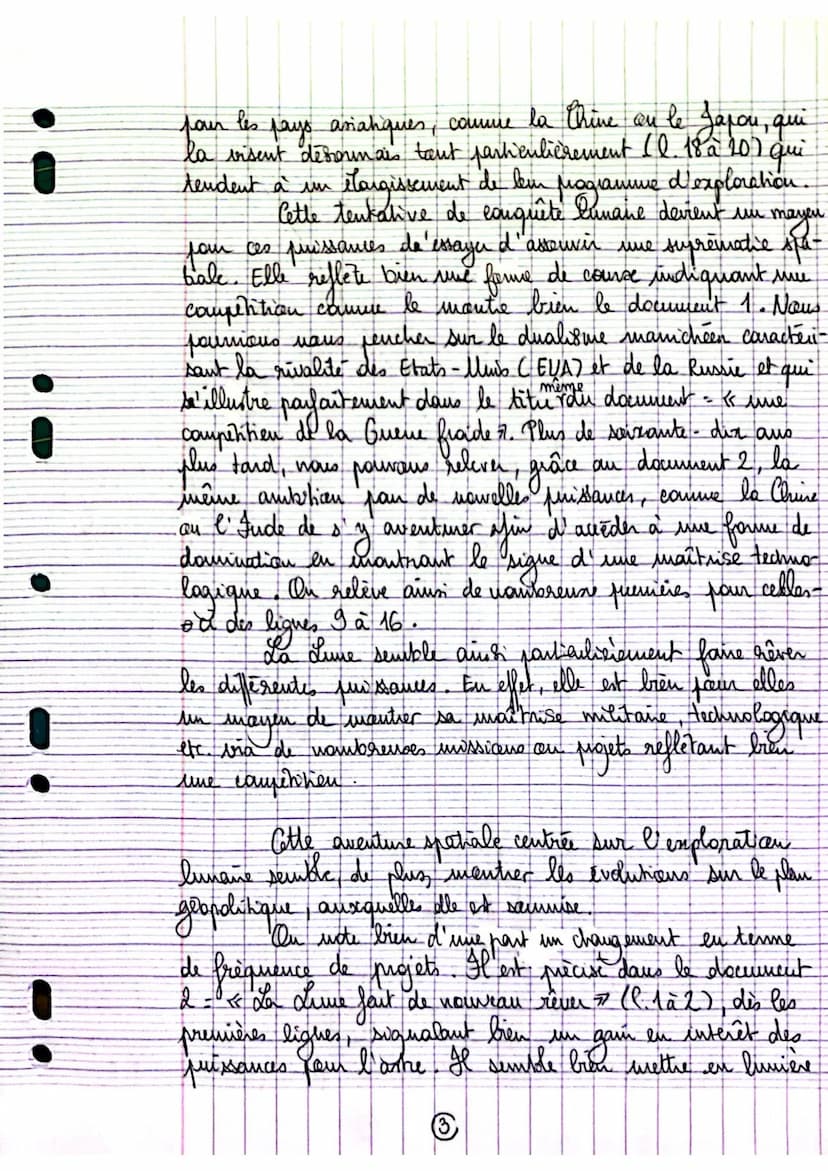 pour les pays asiatiques, comme la Chine ou le Japon, qui
la visent désormais tout particulièrement (l. 18 à 20) qui
tendent à un élargissement de leur programme d'exploration.
Cette tentative de conquête lunaire devient un moyen
pour ces puissances d'essayer d'assouvir une suprématie spa-
tiale. Elle reflète bien une forme de course indiquant une
compétition comme le montre bien le document 1. Nous
pourrions nous pencher sur le dualisme manichéen caractéri-
sant la rivalité des Etats-Unis (EUA) et de la Russie et qui
s'illustre parfaitement dans le titre même du document = « une
compétition de la Guerre froide ». Plus de soixante-dix ans
plus tard, nous pouvons relever, grâce au document 2, la
même ambition pour de nouvelles puissances, comme la Chine
ou l'Inde de s'y aventurer afin d'accéder à une forme de
domination en montrant le signe d'une maîtrise techno-
logique. On relève ainsi de nombreuse premières pour celles-
ci des lignes 9 à 16.
La Lune semble ainsi particulièrement faire rêver
les différentes puissances. En effet, elle est bien pour elles
un moyen de montrer sa maîtrise militaire, technologique
etc. via de nombreuses missions ou projets reflétant bien
une compétition.
Cette aventure spatiale centrée sur l'exploration
lunaire semble, de plus, montrer les évolutions sur le plan
géopolitique, auxquelles elle est soumise.
On note bien d'une part un changement en terme
de fréquence de projets. Il est précisé dans le document
2 = « La Lune fait de nouveau rêver » (l. 1 à 2), dès les
premières lignes, signalant bien un gain en intérêt des
puissances pour l'astre. Il semble bien mettre en lumière
3